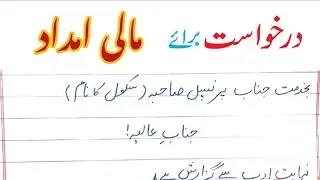 درخواست برائے مالی امداد
بخدمت جناب پرنسپل صاحبہ (سکول کا نام)
جنابِ عالیہ!
نہایت ادب سے گزارش ہے